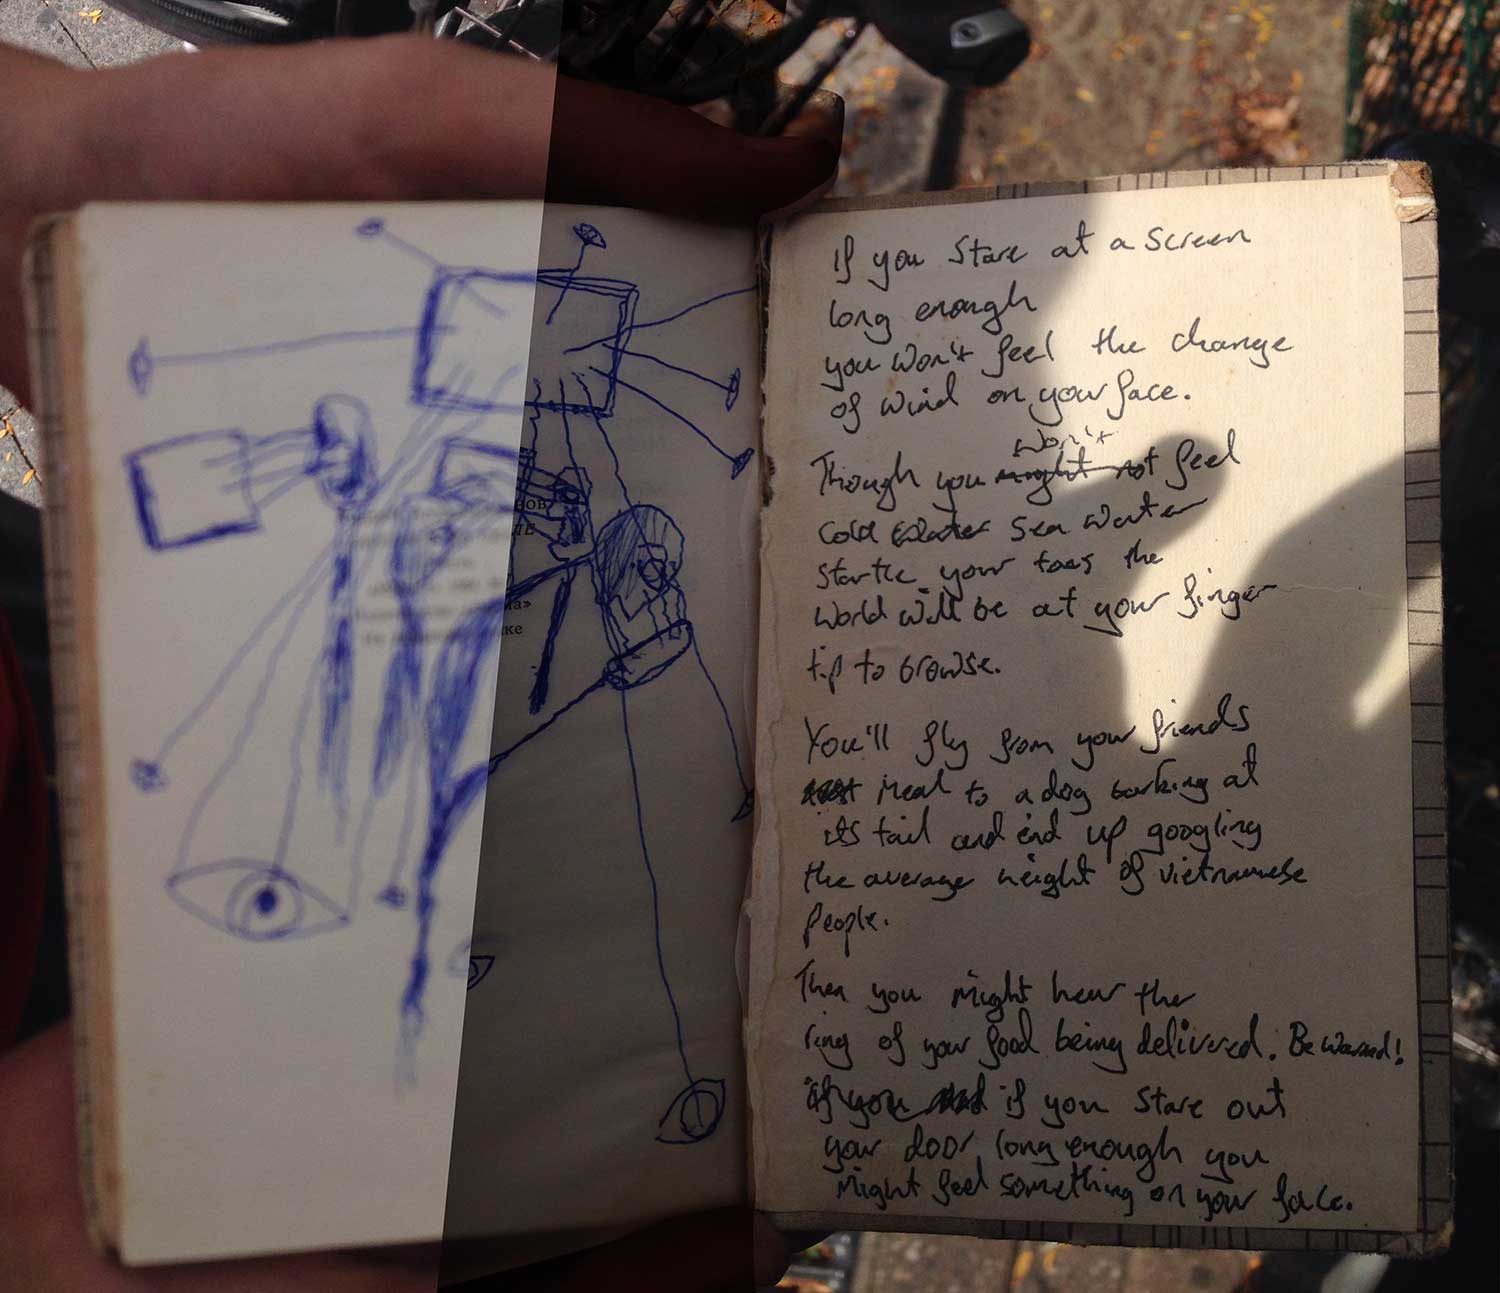 ов
ТЕ
ма»
ке
If you stare at a screen
long enough
you won't feel the change
of wind on your face.
won't
Though you might not feel
cold water sea water
startle your toes the
world will be at your finger
tip to browse.
You'll fly from your friends
meal to a dog barking at
its tail and end up googling
the average height of vietnamese
people.
Then you might hear the
ring of your food being delivered. Be warned!
if you if you stare out
your door long enough you
might feel something on your face.